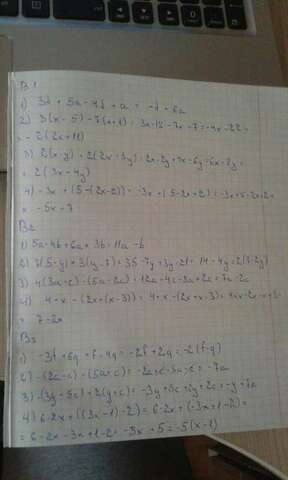 В 1
1) 3d + 5a - 4d + a = -d + 6a
2) 3(x - 5) - 7(x + 1) = 3x - 15 - 7x - 7 = -4x - 22 =
= -2(2x + 11)
3) 2(x - y) - 2(2x - 3y) =
2(3x - 4y)
4) -3x + (5 - (2x - 2)) = -3x + (5 - 2x + 2) = -3x + 5 - 2x + 2 =
= -5x + 7
В 2
1) 5a - 4b + 6a + 3b = 11a - b
2) 7(5 - y) + 3(y - 7) = 35 - 7y + 3y - 21 = 14 - 4y = 2(7 - 2y)
3) 4(3a - c) - (5a - 2c) = 12a - 4c - 5a + 2c = 7a - 2c
4) 4 + x - (2x + (x - 3)) = 4 + x - (2x + x - 3) =
7 - 2x
В 3
1) -3f + 6g + f - 4g = -2f + 2g = -2(f - g)
2) -(2a - c) - (5a + c) = = -7a
3) -(3y - 5c) + 2(y + c) = -3y + 5c + 2y + 2c = -y + 7c
4) 6 - 2x + ((3x - 1) - 2) = 6 - 2x + (-3x + 1 - 2) =
= 6 - 2x - 3x + 1 - 2 = -5x + 5 = -5(x - 1)